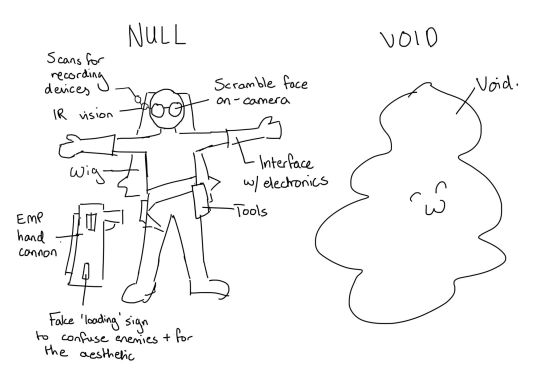 NULL
VOID
Scans for
recording
devices
IR vision
Scramble face
on-camera
Void.
Wig
Interface
w/ electronics
Tools
EMP
hand
cannon
Fake 'loading' sign
to confuse enemies + for
the aesthetic